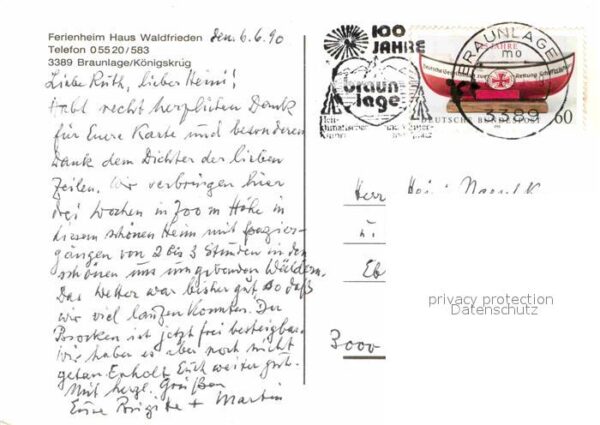 Ferienheim Haus Waldfrieden den 6.6.90
Telefon 0 55 20 / 583
3389 Braunlage/Königskrug
Liebe Ruth, lieber Heini!
Habt recht herzlichen Dank
für Eure Karte und besonderen
Dank dem Dichter der lieben
Zeilen. Wir verbringen hier
drei Wochen in 700 m Höhe in
diesem schönen Heim mit Spazier-
gängen von 2 bis 3 Stunden in den
schönen uns umgebenden Wäldern.
Das Wetter war bisher gut so daß
wir viel laufen konnten. Der
Brocken ist jetzt frei besteigbar.
Wir haben es aber noch nicht
getan. Erholt Euch weiter gut.
Mit herzl. Grüßen
Eure Brigitte + Martin
100
JAHRE
braun
lage
BRAUNLAGE
mo
3389
JAHRE
DEUTSCHE BUNDESPOST
60
Herr
u.
Eb
privacy protection
Datenschutz
3000